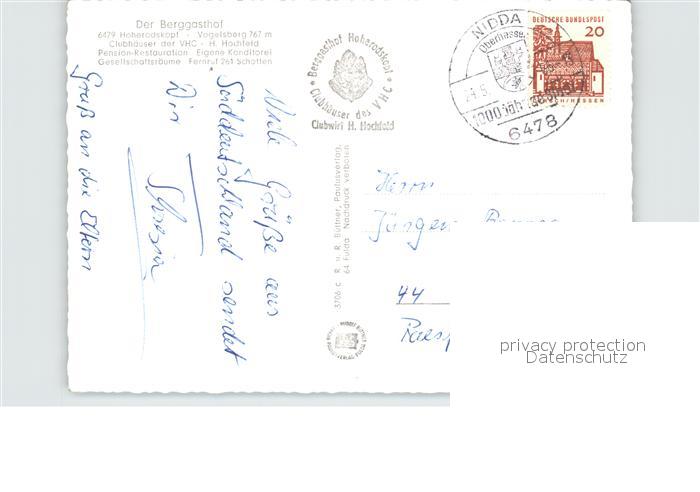 Der Berggasthof
6479 Hoherodskopf · Vogelsberg 767 m
Clubhäuser der VHC · H. Hochfeld
Pension-Restauration Eigene Konditorei
Gesellschaftsräume Fernruf 261 Schotten
Berggasthof Hoherodskopf
Clubhäuser des VHC
Clubwirt H. Hochfeld
NIDDA
Oberhessen
1000 Jahr
6478
DEUTSCHE BUNDESPOST
20
HESSEN
Viele Grüße aus
Süddeutschland sendet
Dir
Gruß an die Eltern
5706 C R. u. R. Büttner, Paulusverlag,
64 Fulda Nachdruck verboten
Herrn
Jürgen
44
privacy protection
Datenschutz